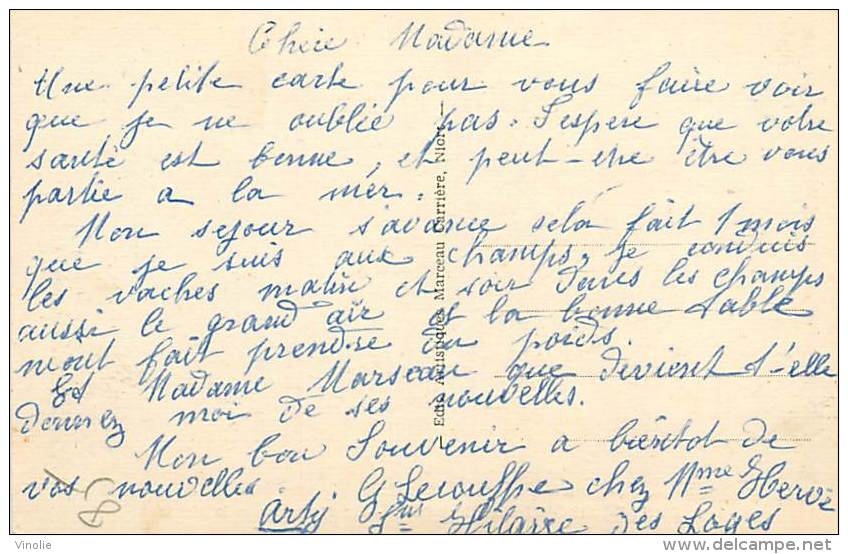 Chère Madame
Une petite carte pour vous faire voir
que je ne oublie pas. J'espere que votre
santé est bonne, et peut-etre êtré vous
partie a la mer.
Mon sejour s'avance sela fait 1 mois
que je suis aux champs, je conduis
les vaches matin et soir dans les champs
aussi le grand air et la bonne table
mont fait prendre du poids.
Et Madame Marseau que devient t'-elle
donnez moi de ses nouvelles.
Mon bon Souvenir a bientot de
vos nouvelles.
G Lecouffe chez Mme Herve
St Hilaire des Loges
Edit. Artistiques Marceau Carrière, Niort
Vinolie
delcampe.net